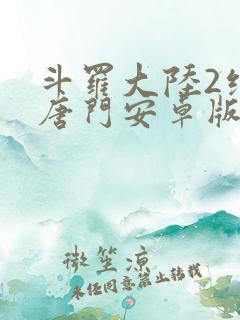 斗羅大陸2絕
唐門安卓版
微笙涼
未经同意禁止转载